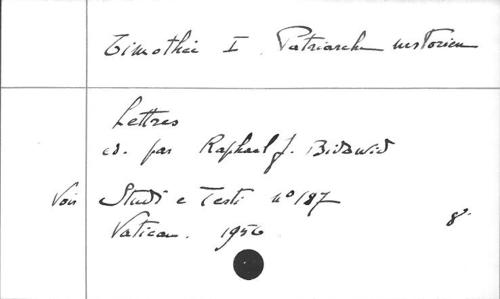 Timothée I Patriarche nestorien
Lettres
éd. par Raphael J. Bidawid
Voir Studi e Testi no 187
Vatican. 1956
8°